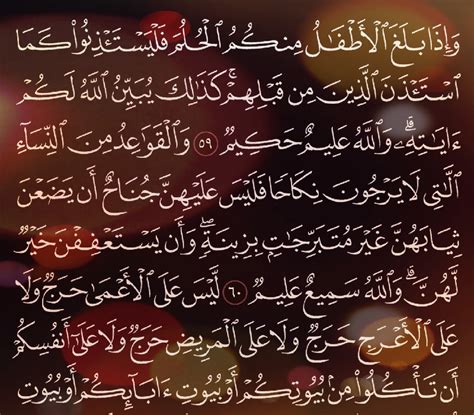 وَإِذَا بَلَغَ ٱلْأَطْفَٰلُ مِنكُمُ ٱلْحُلُمَ فَلْيَسْتَـْٔذِنُوا۟ كَمَا
ٱسْتَـْٔذَنَ ٱلَّذِينَ مِن قَبْلِهِمْ ۚ كَذَٰلِكَ يُبَيِّنُ ٱللَّهُ لَكُمْ
ءَايَٰتِهِۦ ۗ وَٱللَّهُ عَلِيمٌ حَكِيمٌ ٥٩ وَٱلْقَوَٰعِدُ مِنَ ٱلنِّسَآءِ
ٱلَّٰتِى لَا يَرْجُونَ نِكَاحًا فَلَيْسَ عَلَيْهِنَّ جُنَاحٌ أَن يَضَعْنَ
ثِيَابَهُنَّ غَيْرَ مُتَبَرِّجَٰتٍۭ بِزِينَةٍ ۖ وَأَن يَسْتَعْفِفْنَ خَيْرٌ
لَّهُنَّ ۗ وَٱللَّهُ سَمِيعٌ عَلِيمٌ ٦٠ لَّيْسَ عَلَى ٱلْأَعْمَىٰ حَرَجٌ وَلَا
عَلَى ٱلْأَعْرَجِ حَرَجٌ وَلَا عَلَى ٱلْمَرِيضِ حَرَجٌ وَلَا عَلَىٰٓ أَنفُسِكُمْ
أَن تَأْكُلُوا۟ مِنۢ بُيُوتِكُمْ أَوْ بُيُوتِ ءَابَآئِكُمْ أَوْ بُيُوتِ